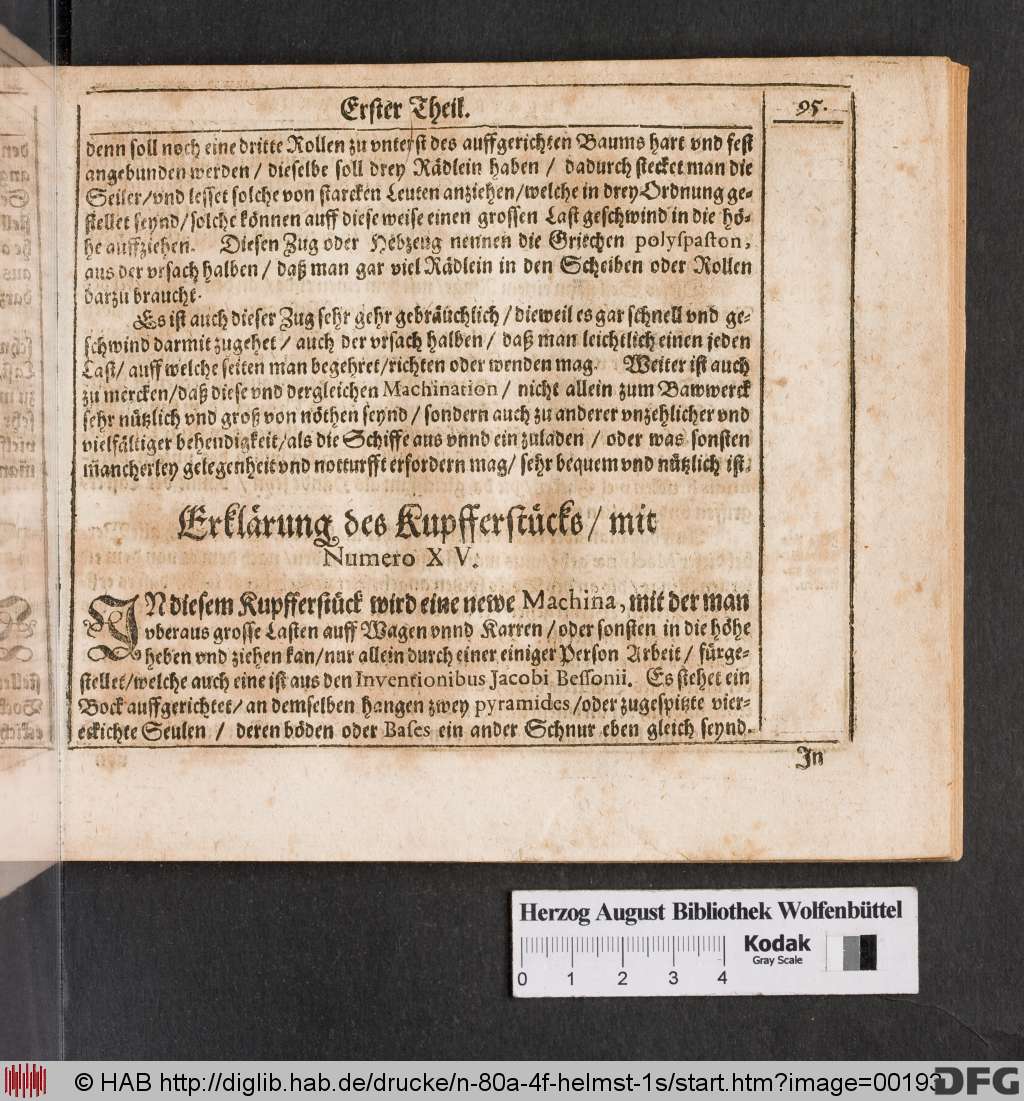 Erster Theil.
95.
denn soll noch eine dritte Rollen zu vnterst des auffgerichten Baums hart vnd fest
angebunden werden / dieselbe soll drey Rädlein haben / dadurch stecket man die
Seiler/vnd lesset solche von starcken Leuten anziehen/welche in drey Ordnung ge-
stellet seynd/solche können auff diese weise einen grossen Last geschwind in die hö-
he auffziehen. Diesen Zug oder Hebzeug nennen die Griechen polyſpaſton,
aus der vrsach halben / daß man gar viel Rädlein in den Scheiben oder Rollen
darzu braucht.
Es ist auch dieser Zug sehr gehr gebräuchlich / dieweil es gar schnell vnd ge-
schwind darmit zugehet / auch der vrsach halben / daß man leichtlich einen jeden
Last/ auff welche seiten man begehret/richten oder wenden mag. Weiter ist auch
zu mercken/daß diese vnd dergleichen Machination / nicht allein zum Bawwerck
sehr nützlich vnd groß von nöthen seynd / sondern auch zu anderer vnzehlicher vnd
vielfältiger behendigkeit/als die Schiffe aus vnnd ein zuladen / oder was sonsten
mancherley gelegenheit vnd notturfft erfordern mag/ sehr bequem vnd nützlich ist.
Erklärung des Kupfferstücks / mit
Numero X V.
IN diesem Kupfferstück wird eine newe Machina, mit der man
vberaus grosse Lasten auff Wagen vnnd Karren / oder sonsten in die höhe
heben vnd ziehen kan/nur allein durch einer einiger Person Arbeit / fürge-
stellet/welche auch eine ist aus den Inventionibus Jacobi Beſſonii. Es stehet ein
Bock auffgerichtet/ an demselben hangen zwey pyramides /oder zugespitzte vier-
eckichte Seulen / deren böden oder Baſes ein ander Schnur eben gleich seynd.
In
Herzog August Bibliothek Wolfenbüttel
Kodak
Gray Scale
0 1 2 3 4
© HAB http://diglib.hab.de/drucke/n-80a-4f-helmst-1s/start.htm?image=00193
DFG